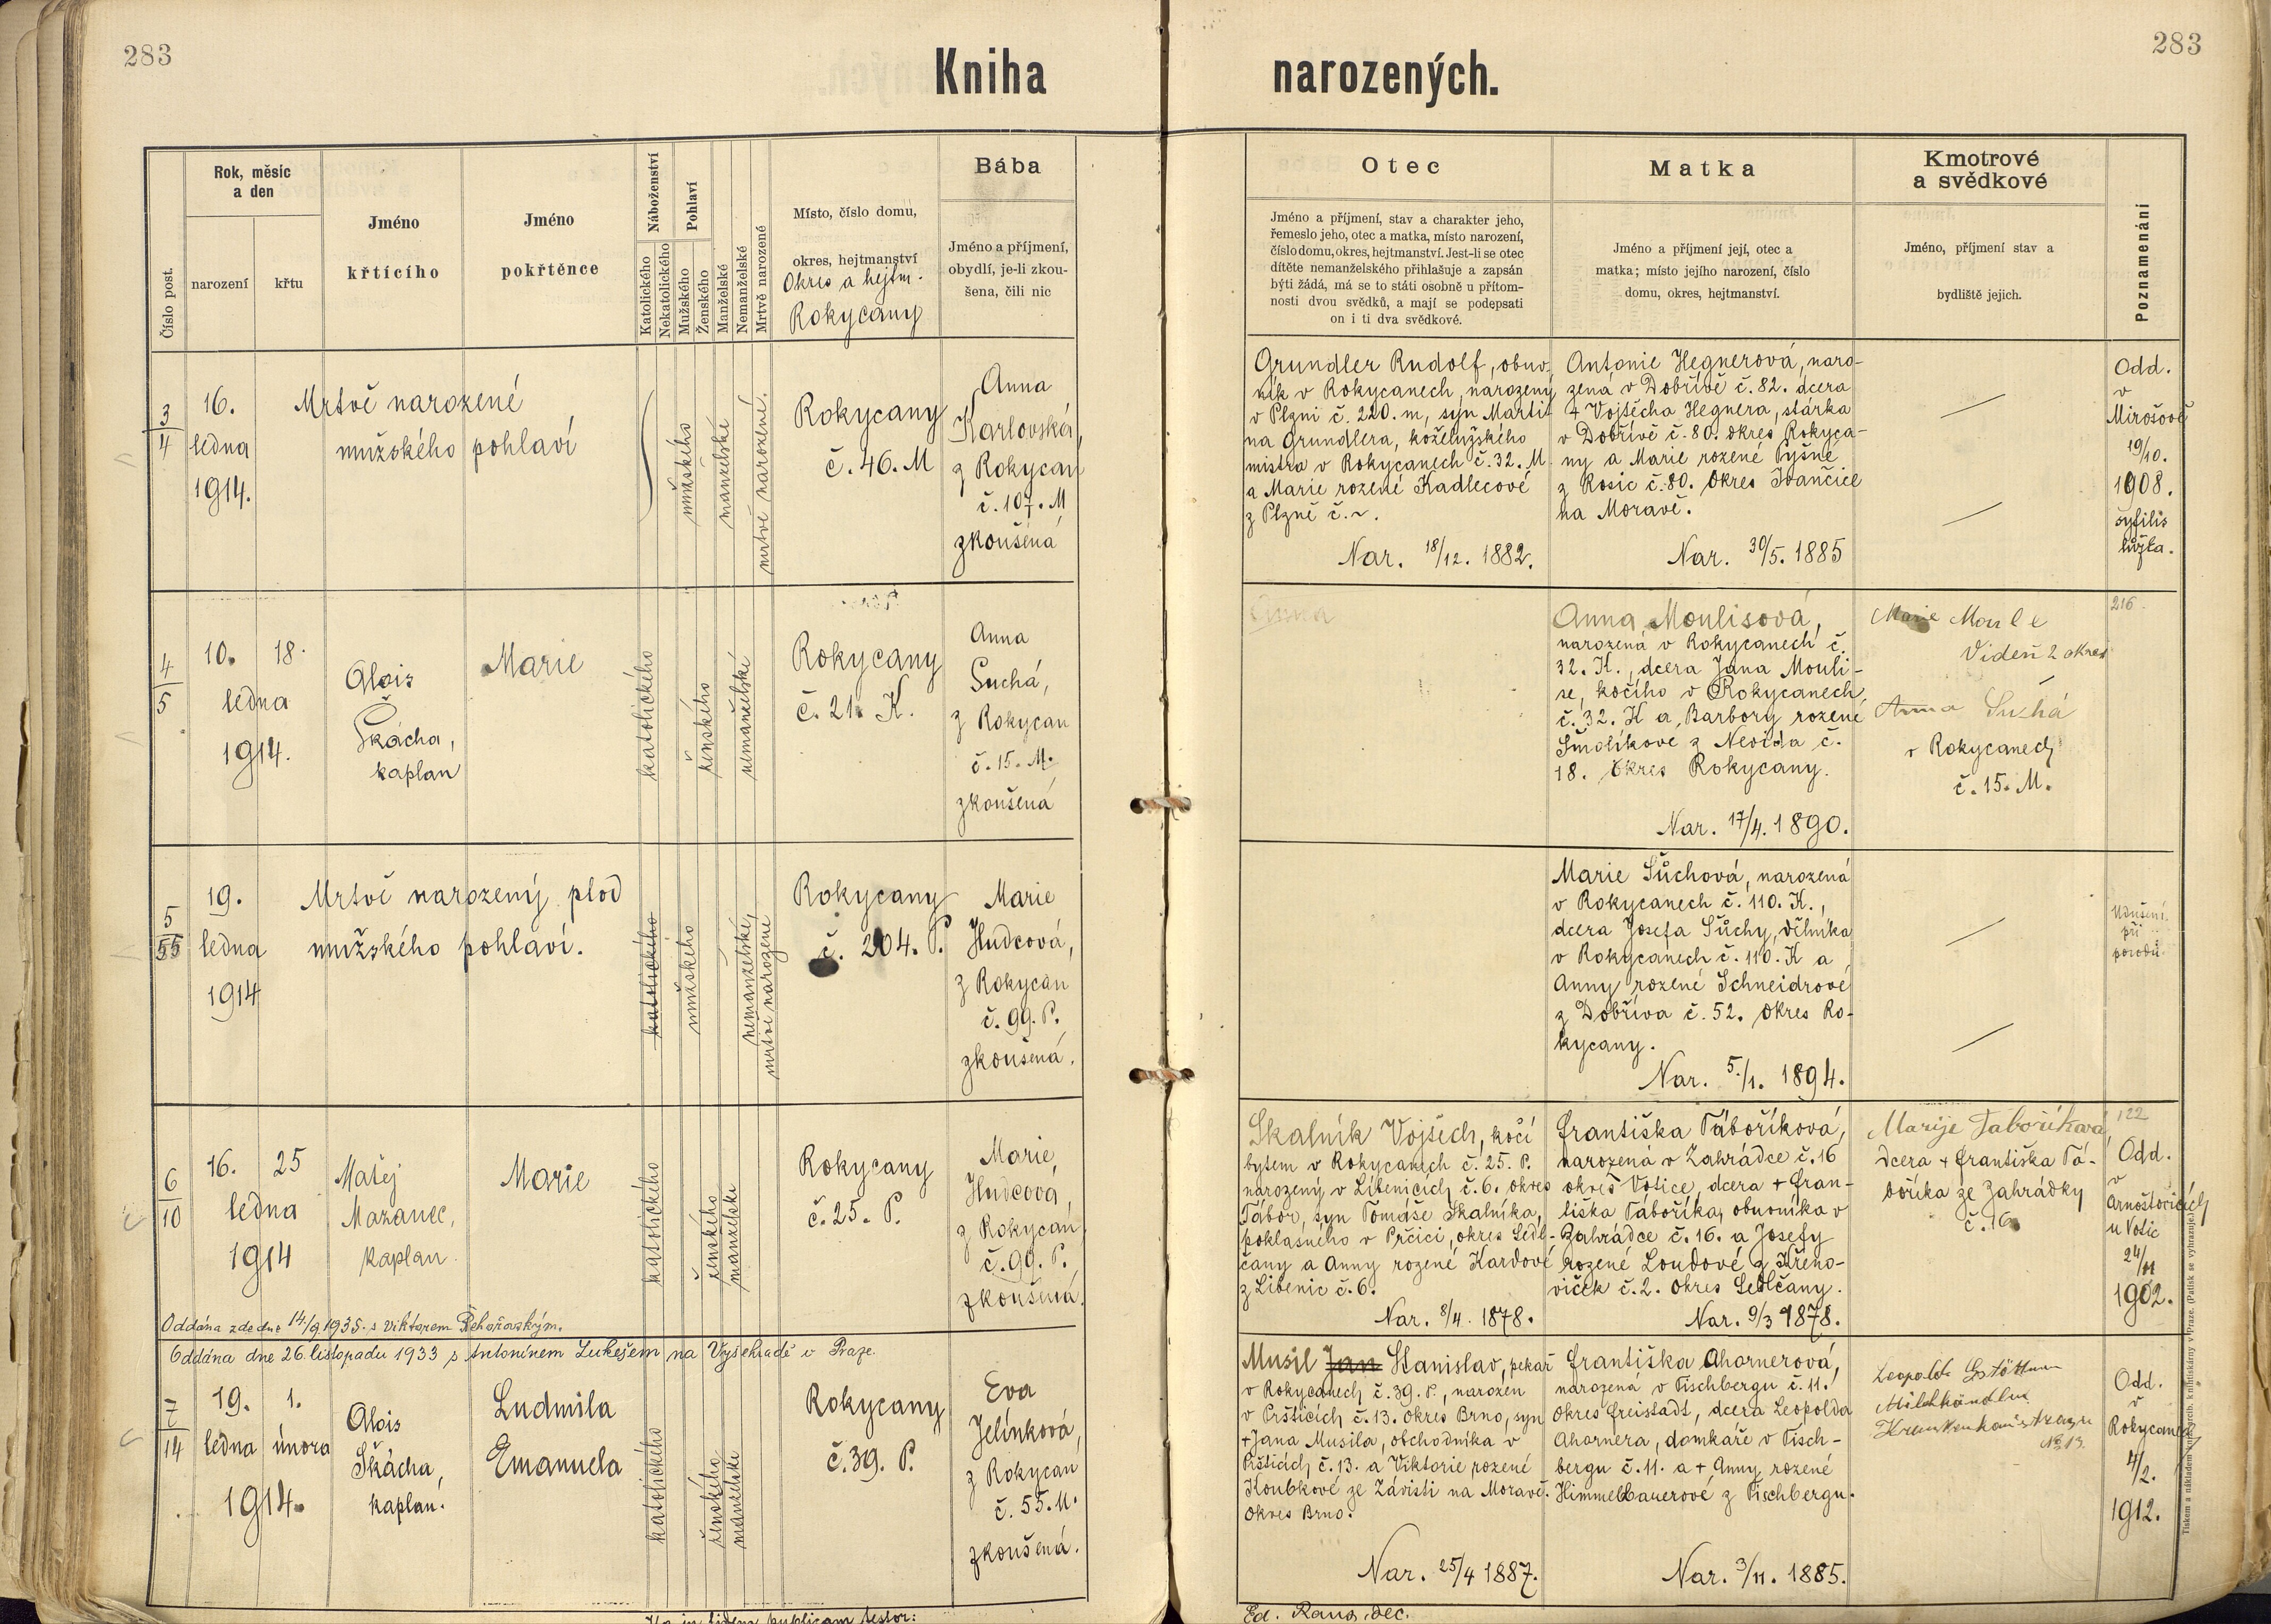 283
283
Kniha narozených.
Číslo post.
Rok, měsíc
a den
narození
křtu
Jméno
křtícího
Jméno
pokřtěnce
Náboženství
Katolického
Nekatolického
Pohlaví
Mužského
Ženského
Manželské
Nemanželské
Mrtvě narozené
Místo, číslo domu,
okres, hejtmanství
Okres a hejtm.
Rokycany
Bába
Jméno a příjmení,
obydlí, je-li zkou-
šena, čili nic
Otec
Jméno a příjmení, stav a charakter jeho,
řemeslo jeho, otec a matka, místo narození,
číslo domu, okres, hejtmanství. Jest-li se otec
dítěte nemanželského přihlašuje a zapsán
býti žádá, má se to státi osobně u přítom-
nosti dvou svědků, a mají se podepsati
on i ti dva svědkové.
Matka
Jméno a příjmení její, otec a
matka; místo jejího narození, číslo
domu, okres, hejtmanství.
Kmotrové
a svědkové
Jméno, příjmení stav a
bydliště jejich.
Poznamenání
3/4
16.
ledna
1914.
Mrtvě narozené
mužského pohlaví
mužského
manželské
mrtvě narozené.
Rokycany
č. 46. M
Anna
Karlovská,
z Rokycan
č. 107. M
zkoušená
Grundler Rudolf, obuv-
ník v Rokycanech, narozený
v Plzni č. 220. m, syn Marti-
na Grundlera, koželužského
mistra v Rokycanech č. 32. M.
a Marie rozené Kadlecové
z Plzně č. ~.
Nar. 18/12. 1882.
Antonie Hegnerová, naro-
zená v Dobřívě č. 82. dcera
+ Vojtěcha Hegnera, stárka
v Dobřívě č. 80. okres Rokyca-
ny a Marie rozené Pyšné
z Rosic č. 80. Okres Ivančice
na Moravě.
Nar. 30/5. 1885
Odd.
v
Mirošově
19/10.
1908.
syfilis
lůžka.
4/5
10. 18.
ledna
1914.
Alois
Škácha,
kaplan
Marie
katolického
ženského
nemanželské
Rokycany
č. 21. K.
Anna
Suchá,
z Rokycan
č. 15. M.
zkoušená
Anna
Anna Moulisová,
narozená v Rokycanech č.
32. K., dcera Jana Mouli-
se, kočího v Rokycanech
č. 32. K a, Barbory rozené
Smolíkové z Nevida č.
18. Okres Rokycany.
Nar. 17/4. 1890.
Marie Moule
Videň 2 okres
Anna Suchá
v Rokycanech
č. 15. M.
216.
5/55
19.
ledna
1914
Mrtvě narozený plod
mužského pohlaví.
katolického
mužského
nemanželské,
mrtvě narozené
Rokycany
č. 204. P.
Marie
Hudcová,
z Rokycan
č. 99. P.,
zkoušená.
Marie Šůchová, narozená
v Rokycanech č. 110. K.,
dcera Josefa Šůchy, dělníka
v Rokycanech č. 110. K a
Anny rozené Schneidrové
z Dobříva č. 52. okres Ro-
kycany.
Nar. 5./1. 1894.
Udušení
při
porodu.
6/10
16. 25
ledna
1914
Matěj
Mazanec,
kaplan.
Marie
katolického
ženského
manželské
Rokycany
č. 25. P.
Marie
Hudcová,
z Rokycan
č. 99. P.
zkoušená.
Skalník Vojtěch, kočí
bytem v Rokycanech č. 25. P.
narozený v Libenicích č. 6. okres
Tábor, syn Tomáše Skalníka,
poklasného v Prčici, okres Sedl-
čany a Anny rozené Kardové
z Libenic č. 6.
Nar. 8/4. 1878.
Františka Táboříková,
narozená v Zahrádce č. 16
okres Votice, dcera + Fran-
tiška Táboříka, obuvníka v
Zahrádce č. 16. a Josefy
rozené Loudové z Křeno-
viček č. 2. okres Sedlčany.
Nar. 9/3 1878.
Marije Taboříková,
dcera + Františka Tá-
boříka ze Zahrádky
č. 16
122
Odd.
v
Arnoštovicích
u Votic
24/11
1902.
Oddána zde dne 14/9. 1935. s Viktorem Řehořovským.
Oddána dne 26. listopadu 1933 s Antonínem Lukešem na Vyšehradě v Praze.
7/14
19. 1.
ledna února
1914.
Alois
Škácha,
kaplan.
Ludmila
Emanuela
katolického
ženského
manželské
Rokycany
č. 39. P.
Eva
Jelínková,
z Rokycan
č. 55. M.
zkoušená.
Musil Jan Stanislav, pekař
v Rokycanech č. 39. P., narozen
v Pršticích č. 13. okres Brno, syn
+ Jana Musila, obchodníka v
Pršticích č. 13. a Viktorie rozené
Koubkové ze Závisti na Moravě.
Okres Brno.
Nar. 25/4 1887.
Františka Ahornerová,
narozená v Fischbergu č. 11.
Okres Freistadt, dcera Leopolda
Ahornera, domkaře v Fisch-
bergu č. 11. a + Anny rozené
Himmelbauerové z Fischbergu.
Nar. 3/11. 1885.
Leopold
Milchhändler
No 13.
Odd.
v
Rokycanech
4/2.
1912.
Ed. Raus, dec.